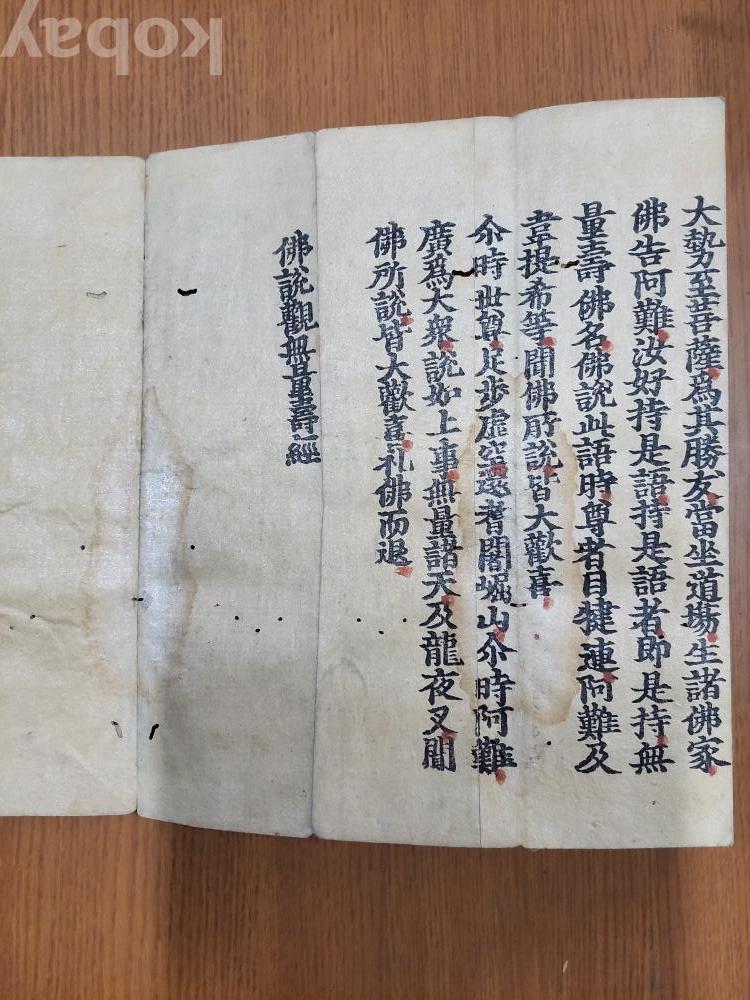 大勢至菩薩爲其勝友當坐道場生諸佛家
佛告阿難汝好持是語持是語者即是持無
量壽佛名佛說此語時尊者目揵連阿難及
韋提希等聞佛所說皆大歡喜
尒時世尊足步虛空還耆闍崛山尒時阿難
廣爲大衆說如上事無量諸天及龍夜叉聞
佛所說皆大歡喜礼佛而退
佛說觀無量壽經
kobay